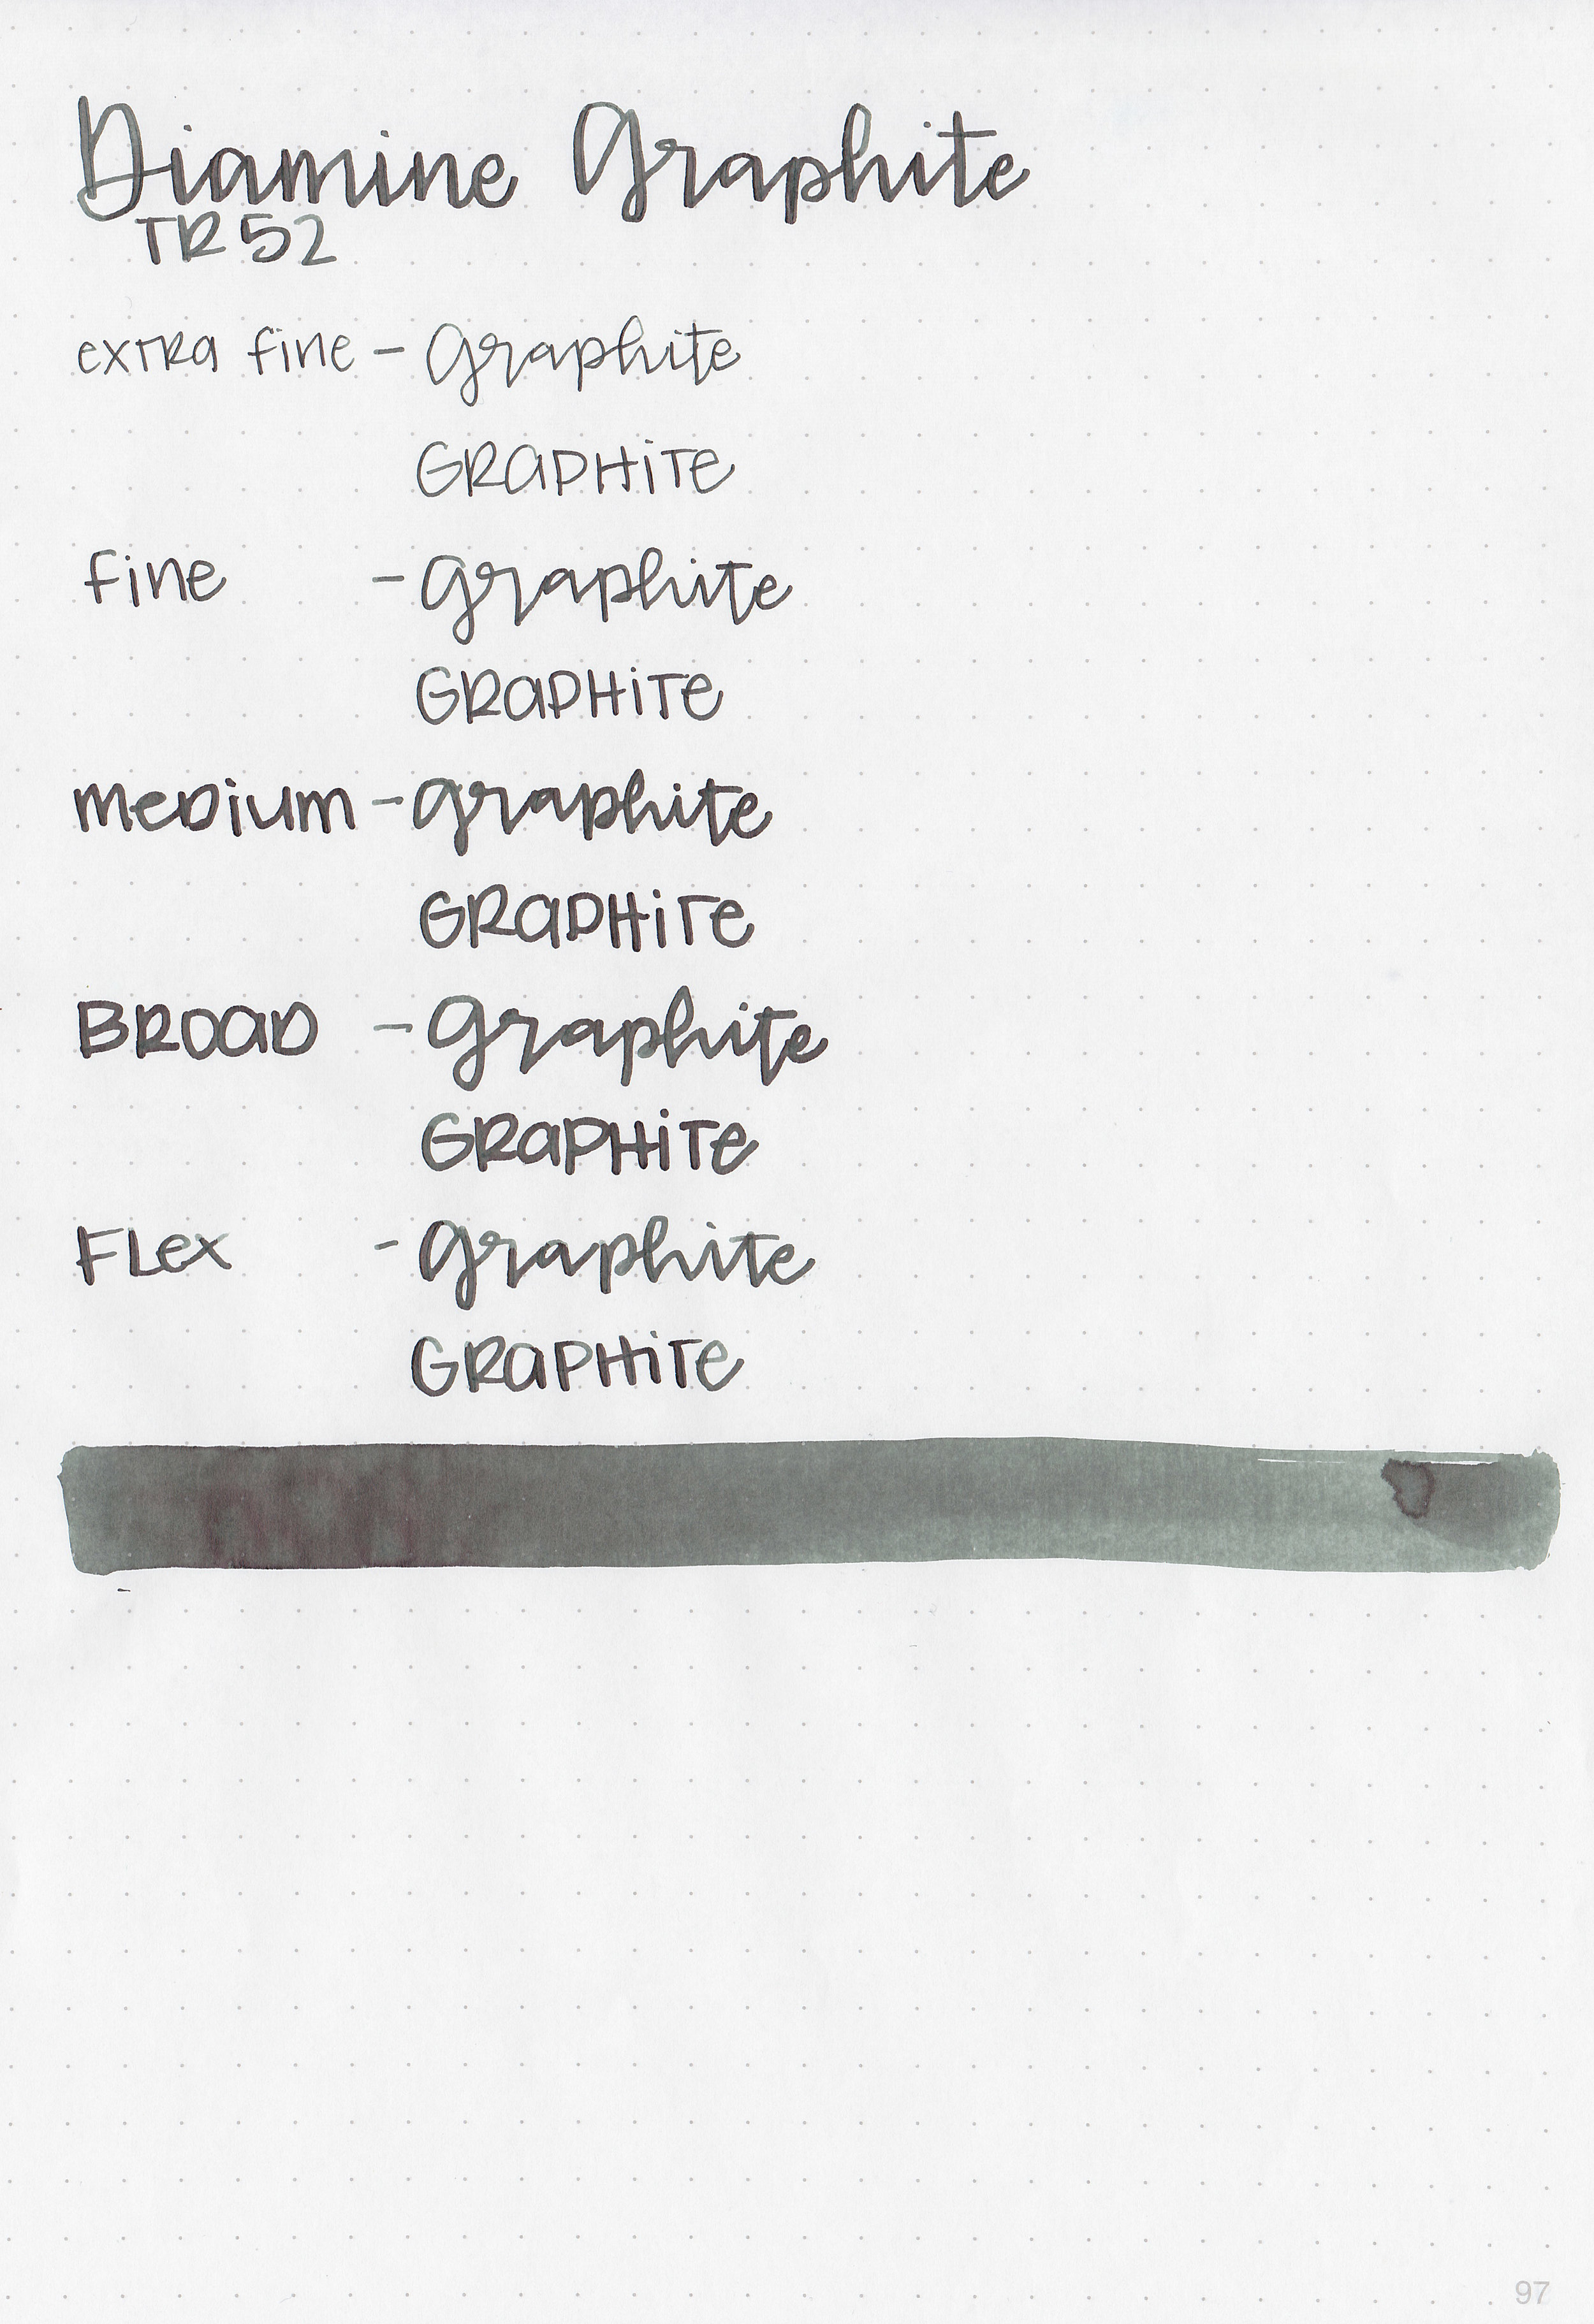 Diamine Graphite
TR52
extra fine - Graphite
GRAPHITE
fine - Graphite
GRAPHITE
medium - graphite
GRAPHITE
BROAD - Graphite
GRAPHITE
FLex - Graphite
GRAPHITE
97